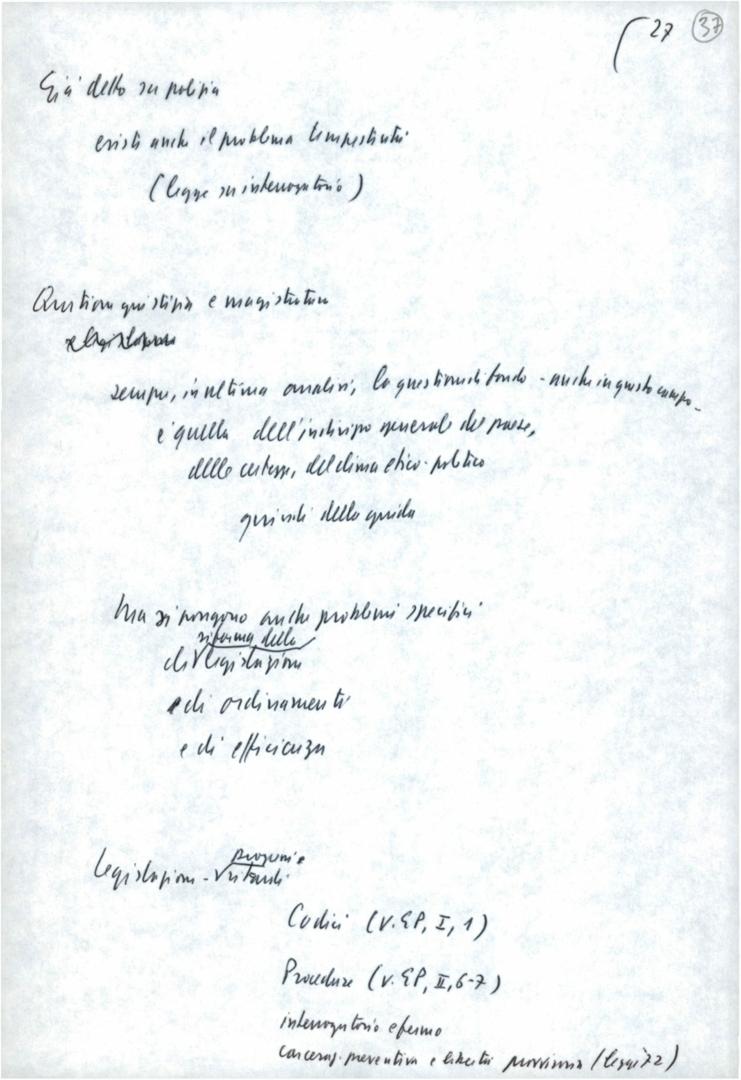 27 37
Già detto su polizia
esiste anche il problema tempestività
(legge su interrogatorio)
Questione giustizia e magistratura
e legislazione
sempre, in ultima analisi, la questione di fondo - anche in questo campo -
è quella dell'indirizzo generale del paese,
delle certezze, del clima etico-politico
quindi della guida
Ma si pongono anche problemi specifici
riforma della
di legislazione
e di ordinamenti
e di efficienza
Legislazione - ritardi
Codici (v. GP, I, 1)
Procedure (v. GP, II, 6-7)
interrogatorio e fermo
carceraz. preventiva e libertà provvisoria (leggi 72)